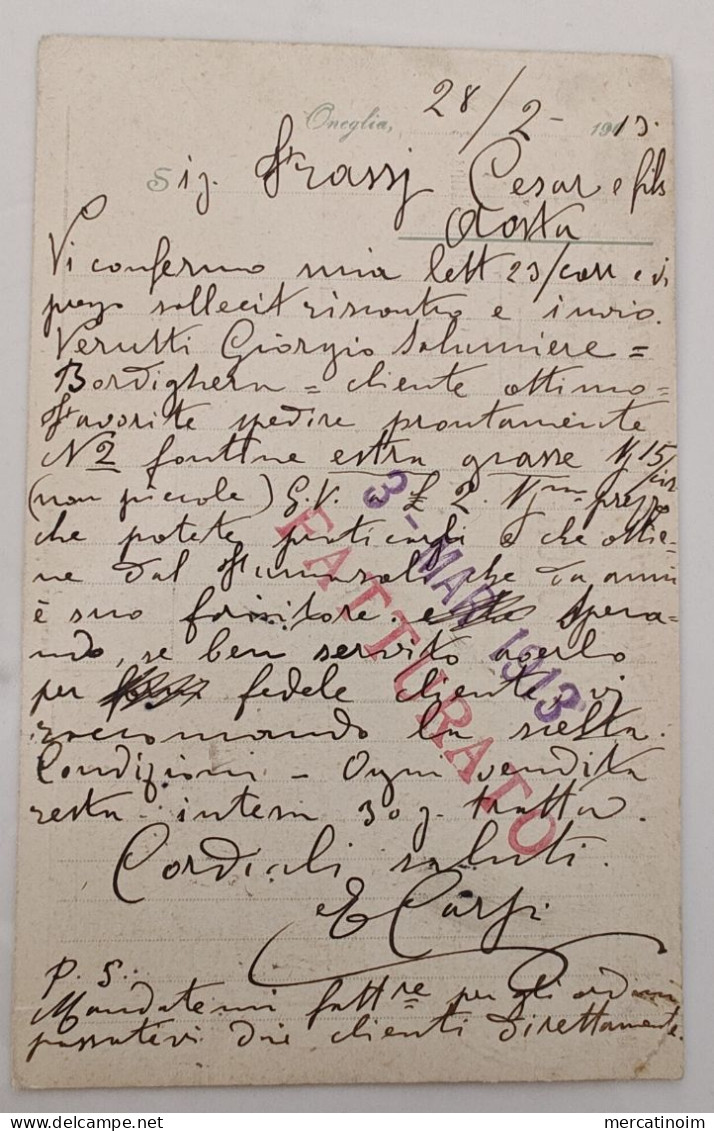 Oneglia, 28/2 - 1913.
Sig. Frassj Cesar e fils
Aosta
Vi confermo mia lett 23/corr e vi
prego sollecit riscontro e invio.
Verutti Giorgio Salumiere =
Bordighera = cliente ottimo =
Favorite spedire prontamente
No 2 fontine estra grasse
(non piccole) G.V. a £ 2. prezzo
che potete praticargli e che ottie-
ne dal che da anni
è suo fornitore. Spera-
ndo, se ben servito averlo
per fedele cliente, vi
raccomando la scelta.
Condizioni - Ogni vendita
resta intesa 30 g. tratta.
Cordiali saluti.
E Carpi
P. S.:
Mandatemi fattre per gli ordini
passativi dai clienti direttamente.
3 - MAR 1913
FATTURATO
mercatinoim